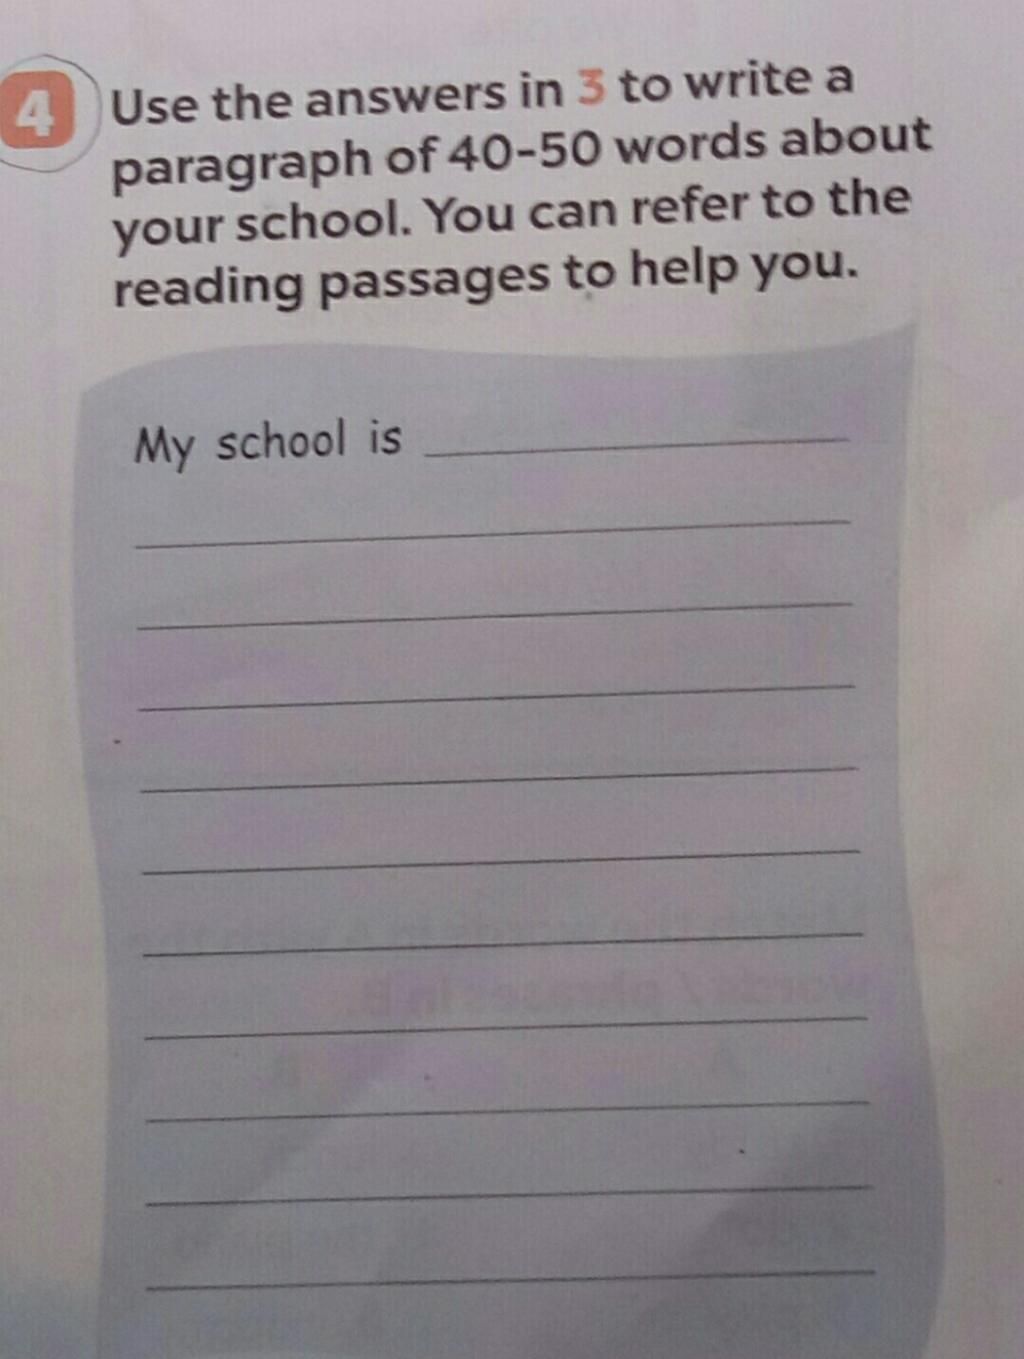 4 Use the answers in 3 to write a
paragraph of 40-50 words about
your school. You can refer to the
reading passages to help you.
My school is